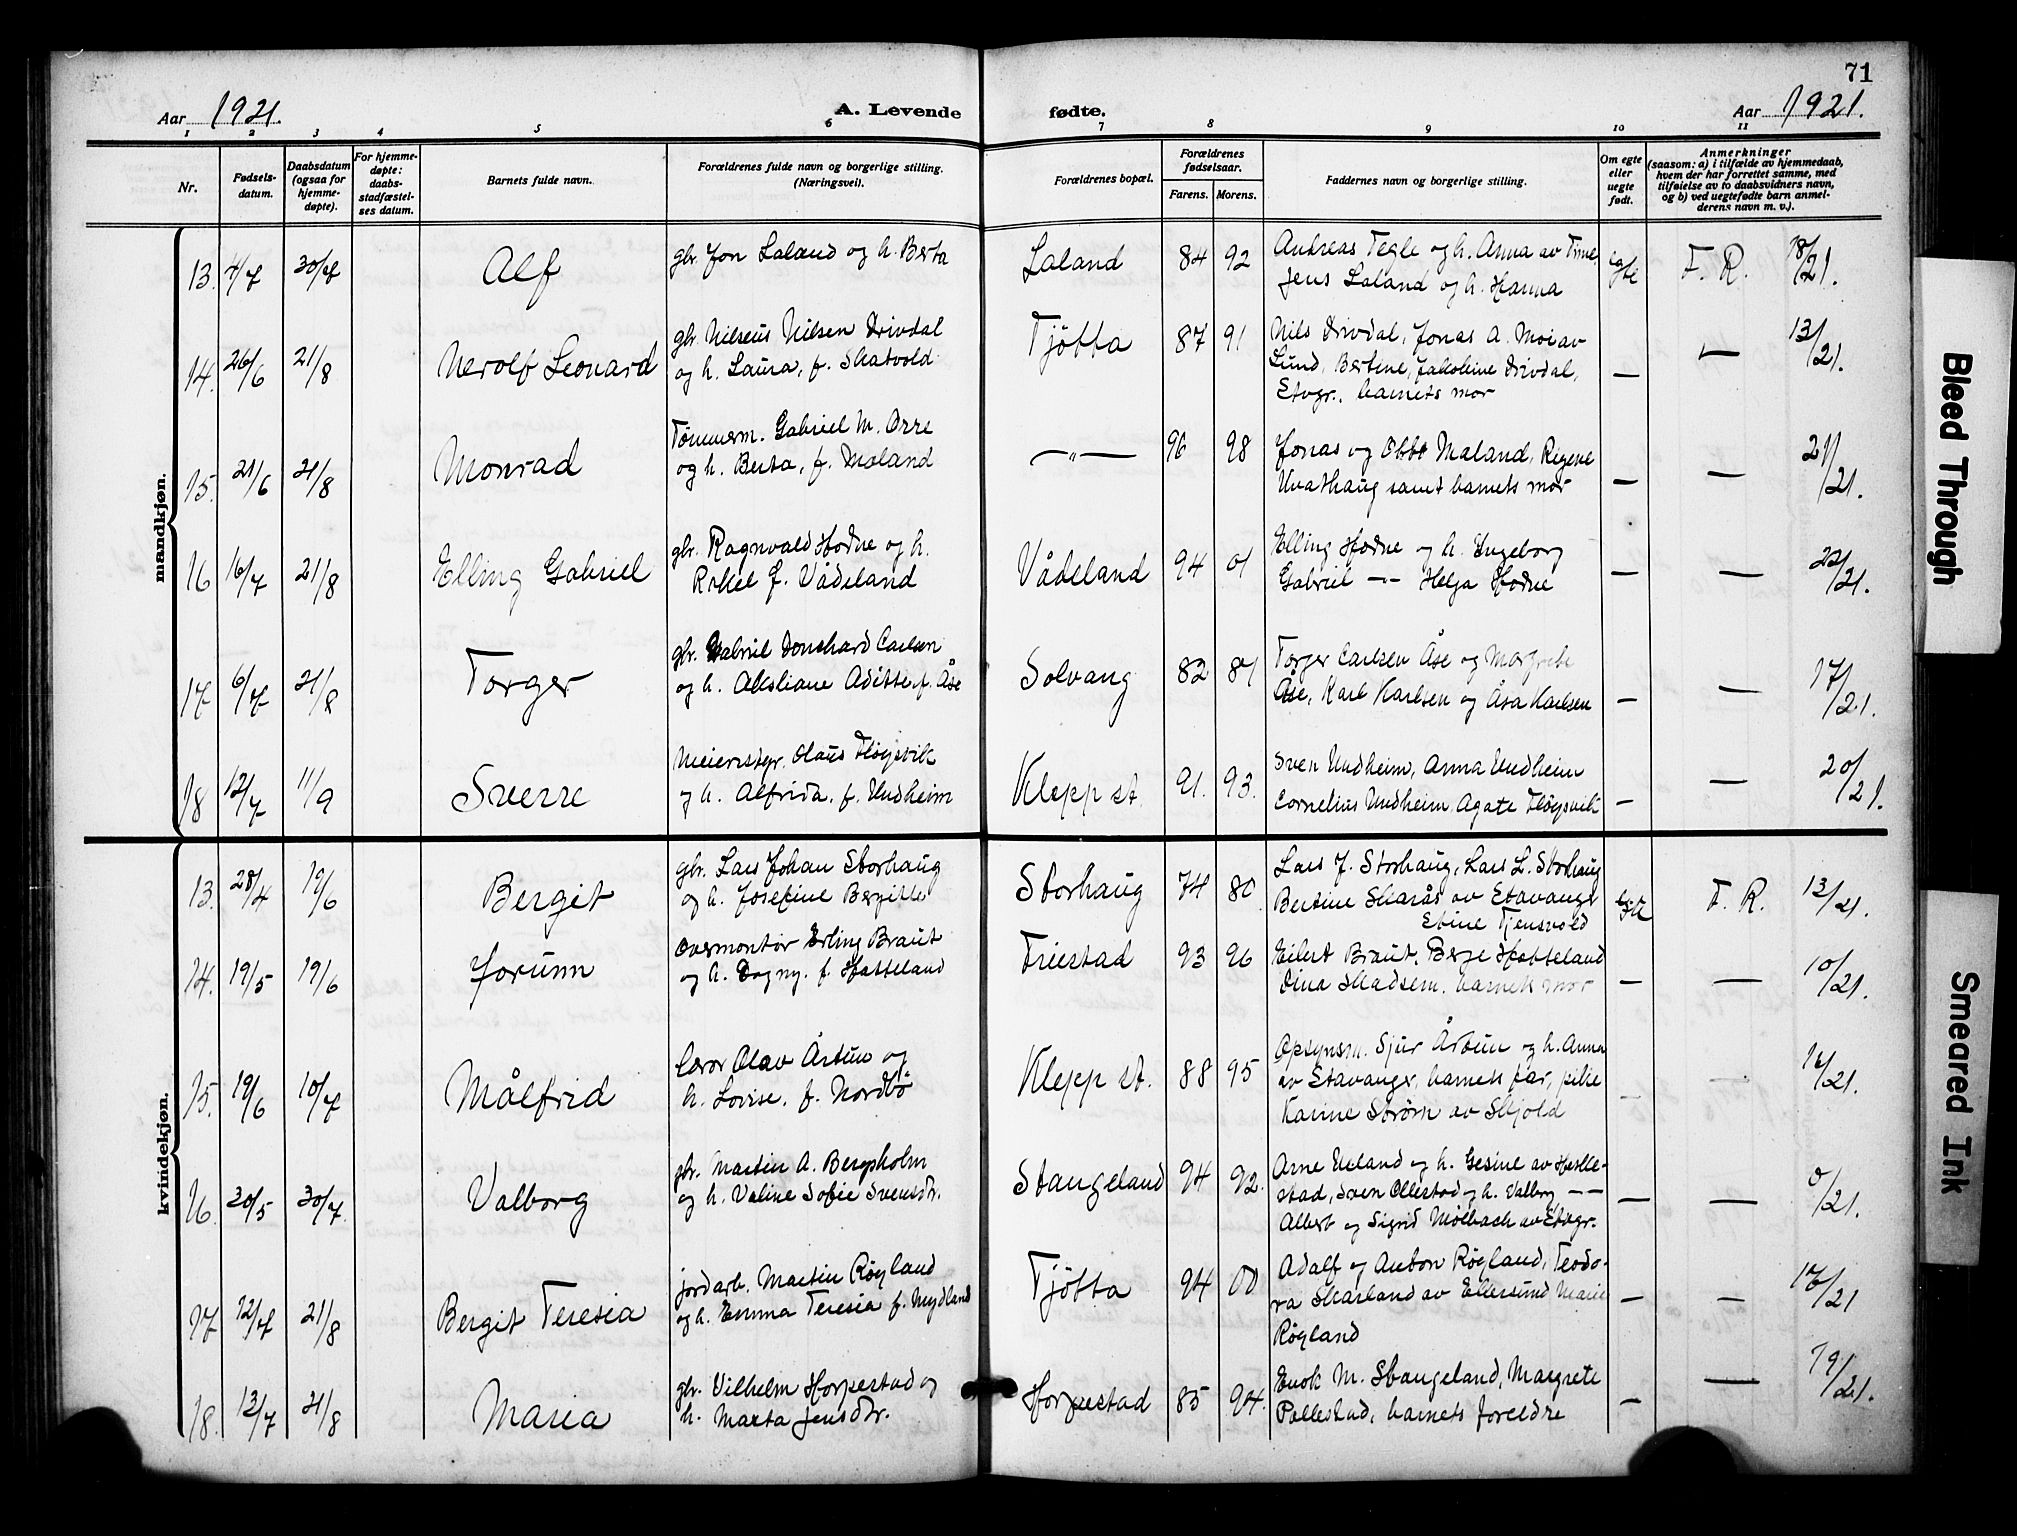 71
Aar 1921.
A. Levende fødte.
Aar 1921.
1 2 3 4 5 6 7 8 9 10 11
Nr.
Fødsels-
datum.
Daabsdatum
(ogsaa for
hjemme-
døpte).
For hjemme-
døpte:
daabs-
stadfæstel-
ses datum.
Barnets fulde navn.
Forældrenes fulde navn og borgerlige stilling.
(Næringsvei).
Forældrenes bopæl.
Forældrenes
fødselsaar.
Farens. Morens.
Faddernes navn og borgerlige stilling.
Om egte
eller
uegte
født.
Anmerkninger
(saasom: a) i tilfælde av hjemmedaab,
hvem der har forrettet samme, med
tilføielse av to daabsvidners navn,
og b) ved uegtefødte barn anmel-
derens navn m. v.).
mandkjøn.
13. 4/7 30/7 Alf
gbr. Jon Laland og h. Berta
Laland 84 92
Andreas Tegle og h. Anna av Time
Jens Laland og h. Hanna
egte F. R. 18/21.
14. 26/6 21/8 Nerolf Leonard
gbr. Nilseus Nilsen Drivdal
og h. Laura, f. Skatvold
Tjötta 87 91
Nils Drivdal, Jonas A. Moi av
Lund, Bertine, Jakobine Drivdal,
Stvgr., barnets mor
— — 13/21.
15. 21/6 21/8 Monrad
Tømmerm. Gabriel M. Orre
og h. Berta, f. Maland
—„— 96 98
Jonas og Maland, Regene
samt barnets mor
— — 21/21.
16 16/7 21/8 Elling Gabriel
gbr. Ragnvald Hodne og h.
Rakel f. Vådeland
Vådeland 94 01
Elling Hodne og h. Ingeborg
Gabriel —„— Helga Hodne
— — 22/21.
17 6/7 21/8 Torger
gbr. Gabriel Carlsen
og h. Åse
Solvang 82 87
Torger Carlsen Åse og Margrete
Åse, Karl Karlsen og Åsa Karlsen
— — 17/21.
18 12/7 11/9 Sverre
Meieristyr. Olaus Fløysvik
og h. Alfrida, f. Undheim
Klepp st. 91. 93.
Sven Undheim, Anna Undheim
Cornelius Undheim, Agate Fløysvik
— — 20/21.
kvindekjøn.
13. 28/4 19/6 Bergit
gbr. Lars Johan Storhaug
og h. Josefine Bergitte
Storhaug 74 80
Lars J. Storhaug, Lars L. Storhaug
Bertine Skarås av Stavanger
Stine Tjensvold
Egte F. R. 13/21.
14. 19/5 19/6 Jorunn
Overmontør Erling Braut
og h. Dagny, f. Hatteland
Friestad 93 96
Eilert Braut, Berge Hatteland
Dina Madsen, barnets mor
— — 10/21.
15. 19/6 10/7 Målfrid
lærer Olav Årtun og
h. Lovise, f. Nordbö
Klepp st. 88 95
Opsynsm. Sjur Årtun og h. Anna
av Stavanger, barnets far, pike
Karine Strøm av Skjold
— — /21.
16. 30/5 30/7. Valborg
gbr. Martin A. Bergsholm
og h. Valine Sofie Svensdtr.
Stangeland 94 92.
Arne Ueland og h. Gesine av Helle-
stad, Sven Ollestad og h. Valborg —„—
Albert og Sigrid Mølbach av Stvgr.
— — /21.
17 12/7 21/8 Bergit Teresia
jordarb. Martin Røyland
og h. Emma Teresia f. Mydland
Tjötta 94 00
Adolf og Anton Røyland, Teodo-
ra Skarland av Ekersund Marie
Røyland
— — 16/21
18. 13/7 21/8 Maria
gbr. Vilhelm Horpestad og
h. Marta Jensdtr.
Horpestad 85 94.
Enok M. Stangeland, Margrete
Pollestad, barnets foreldre
— — 19/21.
Bleed Through
Smeared Ink